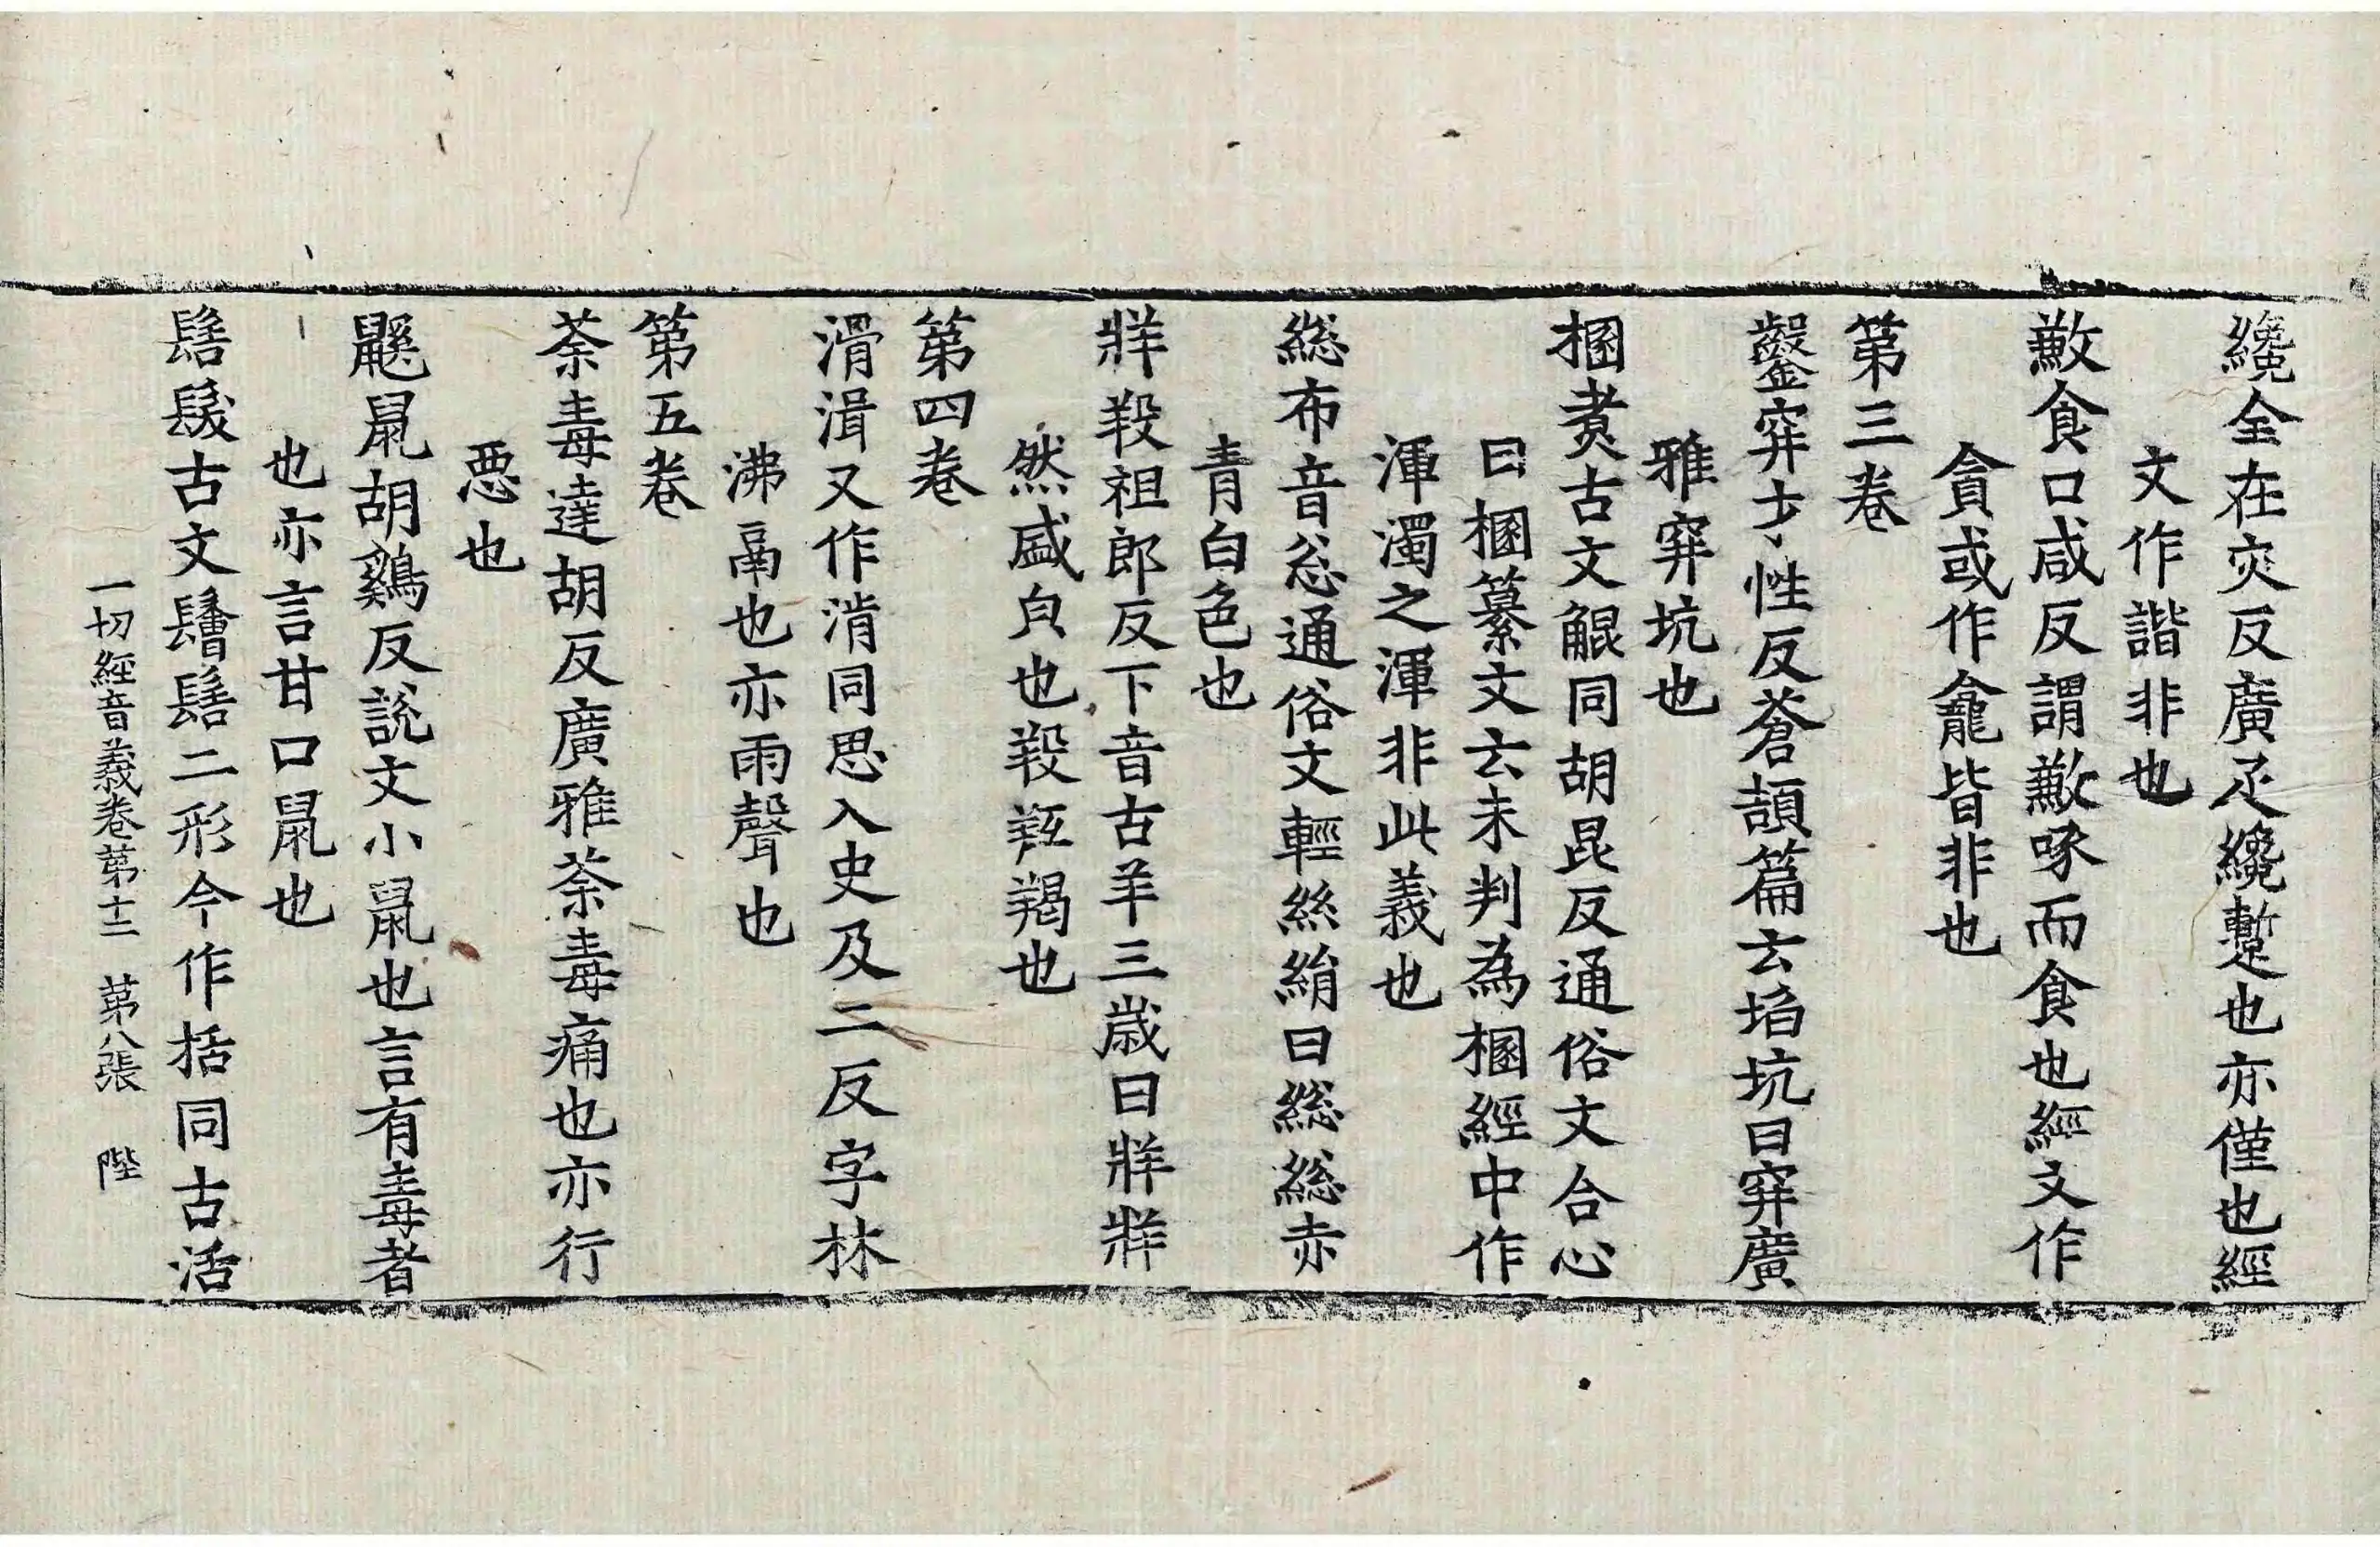 纔全在灾反廣疋纔蹔也亦僅也經
文作諧非也
歉食口咸反謂歉啄而食也經文作
貪或作龕皆非也
第三卷
鑿穽才性反蒼頡篇云埳坑曰穽廣
雅穽坑也
棞煑古文䚠同胡昆反通俗文合心
曰棞纂文云未判為棞經中作
渾濁之渾非此義也
緫布音忩通俗文輕絲絹曰緫緫赤
青白色也
牂羖祖郎反下音古羊三歲曰牂牂
然盛皃也羖羖羯也
第四卷
滑湒又作湇同思入史及二反字林
沸鬲也亦雨聲也
第五卷
荼毒達胡反廣雅荼毒痛也亦行
惡也
鼷鼠胡鷄反説文小鼠也言有毒者
也亦言甘口鼠也
髺髮古文鬠髺二形今作括同古活
一切經音義卷第十二 第八張 陛